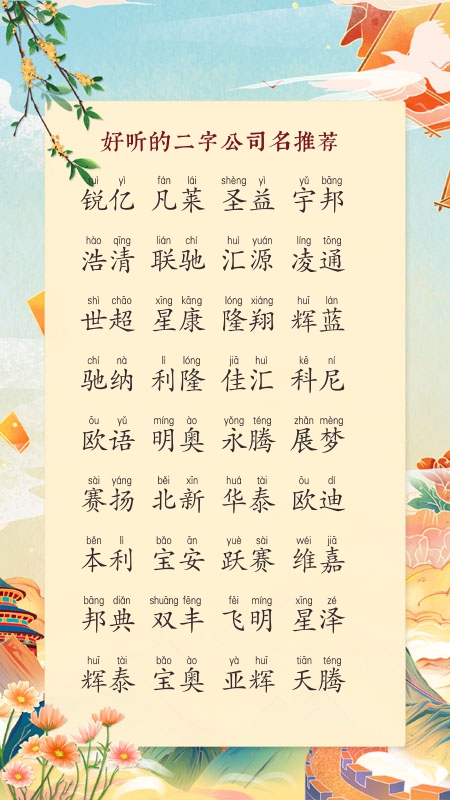 好听的二字公司名推荐
yì fán lái shèng yì yǔ bāng
锐亿 凡莱 圣益 宇邦
hào qīng lián chí huì yuán líng tōng
浩清 联驰 汇源 凌通
shì chāo xīng kāng lóng xiáng huī lán
世超 星康 隆翔 辉蓝
chí nà lì lóng jiā huì kē ní
驰纳 利隆 佳汇 科尼
ōu yǔ míng ào yǒng téng zhǎn mèng
欧语 明奥 永腾 展梦
sài yáng běi xīn huá tài ōu dí
赛扬 北新 华泰 欧迪
běn lì bǎo ān yuè sài wéi jiā
本利 宝安 跃赛 维嘉
bāng diǎn shuāng fēng fēi míng xīng zé
邦典 双丰 飞明 星泽
huī tài bǎo ào yà huī tiān téng
辉泰 宝奥 亚辉 天腾